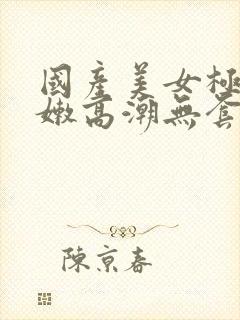 國產美女極
嫩高潮無套
陳京春